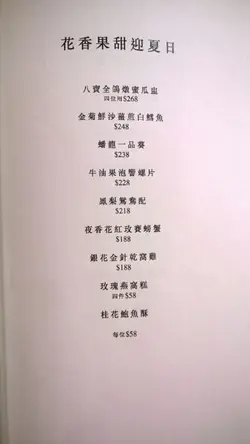 花香果甜迎夏日
八寶全鴿燉蜜瓜盅
四位用$268
金菊鮮沙薑煎白鱈魚
$248
蟠龍一品葵
$238
牛油果泡響螺片
$228
鳳梨鴛鴦配
$218
夜香花紅玫賽螃蟹
$188
銀花金針乾窩雞
$188
玫瑰燕窩糕
四件$58
桂花鮑魚酥
每位$58